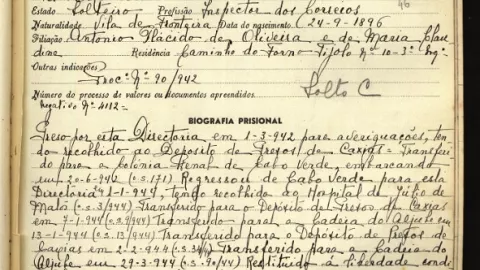 46
Estado Solteiro Profissão Inspector dos Correios
Naturalidade Vila de Fronteira Data do nascimento 24-9-1896
Filiação Antonio Plácido de Oliveira e de Maria Clau-
dine Residência Caminho do Forno Tijolo Nº 10-3º Esq.
Outras indicações
Proc: Nº 90/942
Número do processo de valores ou documentos apreendidos.
Negativo Nº 4112=
Solto C
BIOGRAFIA PRISIONAL
Preso por esta Directoria em 1-3-942 para averiguações, ten
do recolhido ao Deposito de Presos de Caxias= Transfe-
rido para a Colonia Penal de Cabo Verde, embarcando
em 20-6-942 (o.s. 171) Regressou de Cabo Verde para esta
Directoria 1-1-944, tendo recolhido ao Hospital de Júlio de
Matos (o.s. 3/944) Transferido para o Depósito de Presos de Caxias
em 7-1-944 (o.s. 9/944) Transferido para a Cadeia do Aljube em
13-1-944 (o.s. 13/944) Transferido para o Depósito de Presos de
Caxias em 2-2-944 (o.s. 34/) Transferido para a Cadeia do
Aljube em 29-3-944 (o.s. 90/44) Restituido á liberdade condi